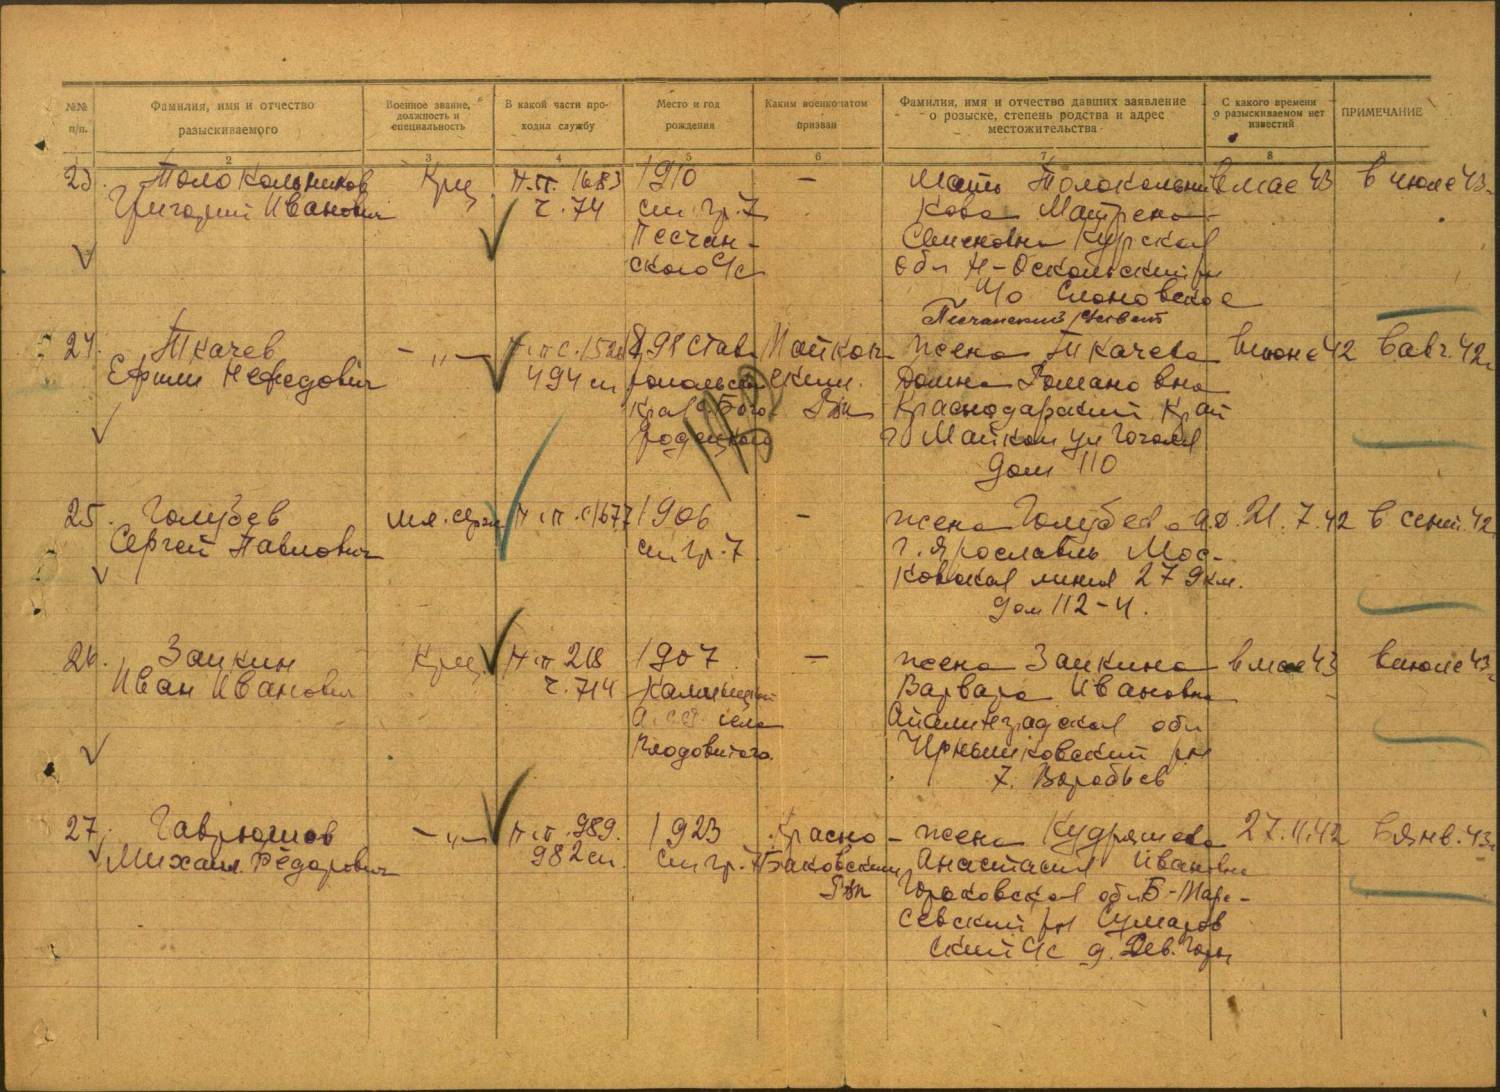 №№ п/п.
Фамилия, имя и отчество
разыскиваемого
Военное звание,
должность и
специальность
В какой части про-
ходил службу
Место и год
рождения
Каким военкоматом
призван
Фамилия, имя и отчество давших заявление
о розыске, степень родства и адрес
местожительства
С какого времени
о разыскиваемом нет
известий
ПРИМЕЧАНИЕ
2 3 4 5 6 7 8 9
23.
Толокольников
Григорий Иванович
Крц.
п.п. 1683
ч. 74
1910
см. гр. 7
Песчан-
ского с/с
—
Мать Толокольни
кова Матрена
Семеновна Курская
обл Н-Оскольский рн
п/о Слоновское
Песчанский с/совет
в мае 43
в июле 43
24.
Ткачев
Ефим Нефедович
—"—
494 сп
1898 Став
ропольск
край с. Бого
родецкой
Майкоп
ским
РВК
жена Ткачева
Домна Романовна
Краснодарский Край
г Майкоп ул Гоголя
дом 110
в июне 42
в авг. 42
25.
Голубев
Сергей Павлович
мл. серж
п.п.с 1677
1906
см гр. 7
—
жена Голубева
г. Ярославль Мос-
ковская линия 279 км.
дом 112-4.
21.7.42
в сент. 42
26.
Заикин
Иван Иванович
Крц.
п.п 218
ч. 714
1907
Калмыцкая
АССР село
Плодовитого
—
жена Заикина
Варвара Ивановна
обл
Чернышковский рн
х. Воробьев
в мае 43
в июле 43
27.
Гаврюшов
Михаил Федорович
—"—
п.п. 989.
982 сп.
1923
см гр. 7
Красно-
Баковским
РВК
жена Кудряшева
Анастасия Ивановна
Горьковская обл Б-Маре-
севский рн Сумаров
ский с/с д. Дев. Горы
27.11.42
в янв. 43